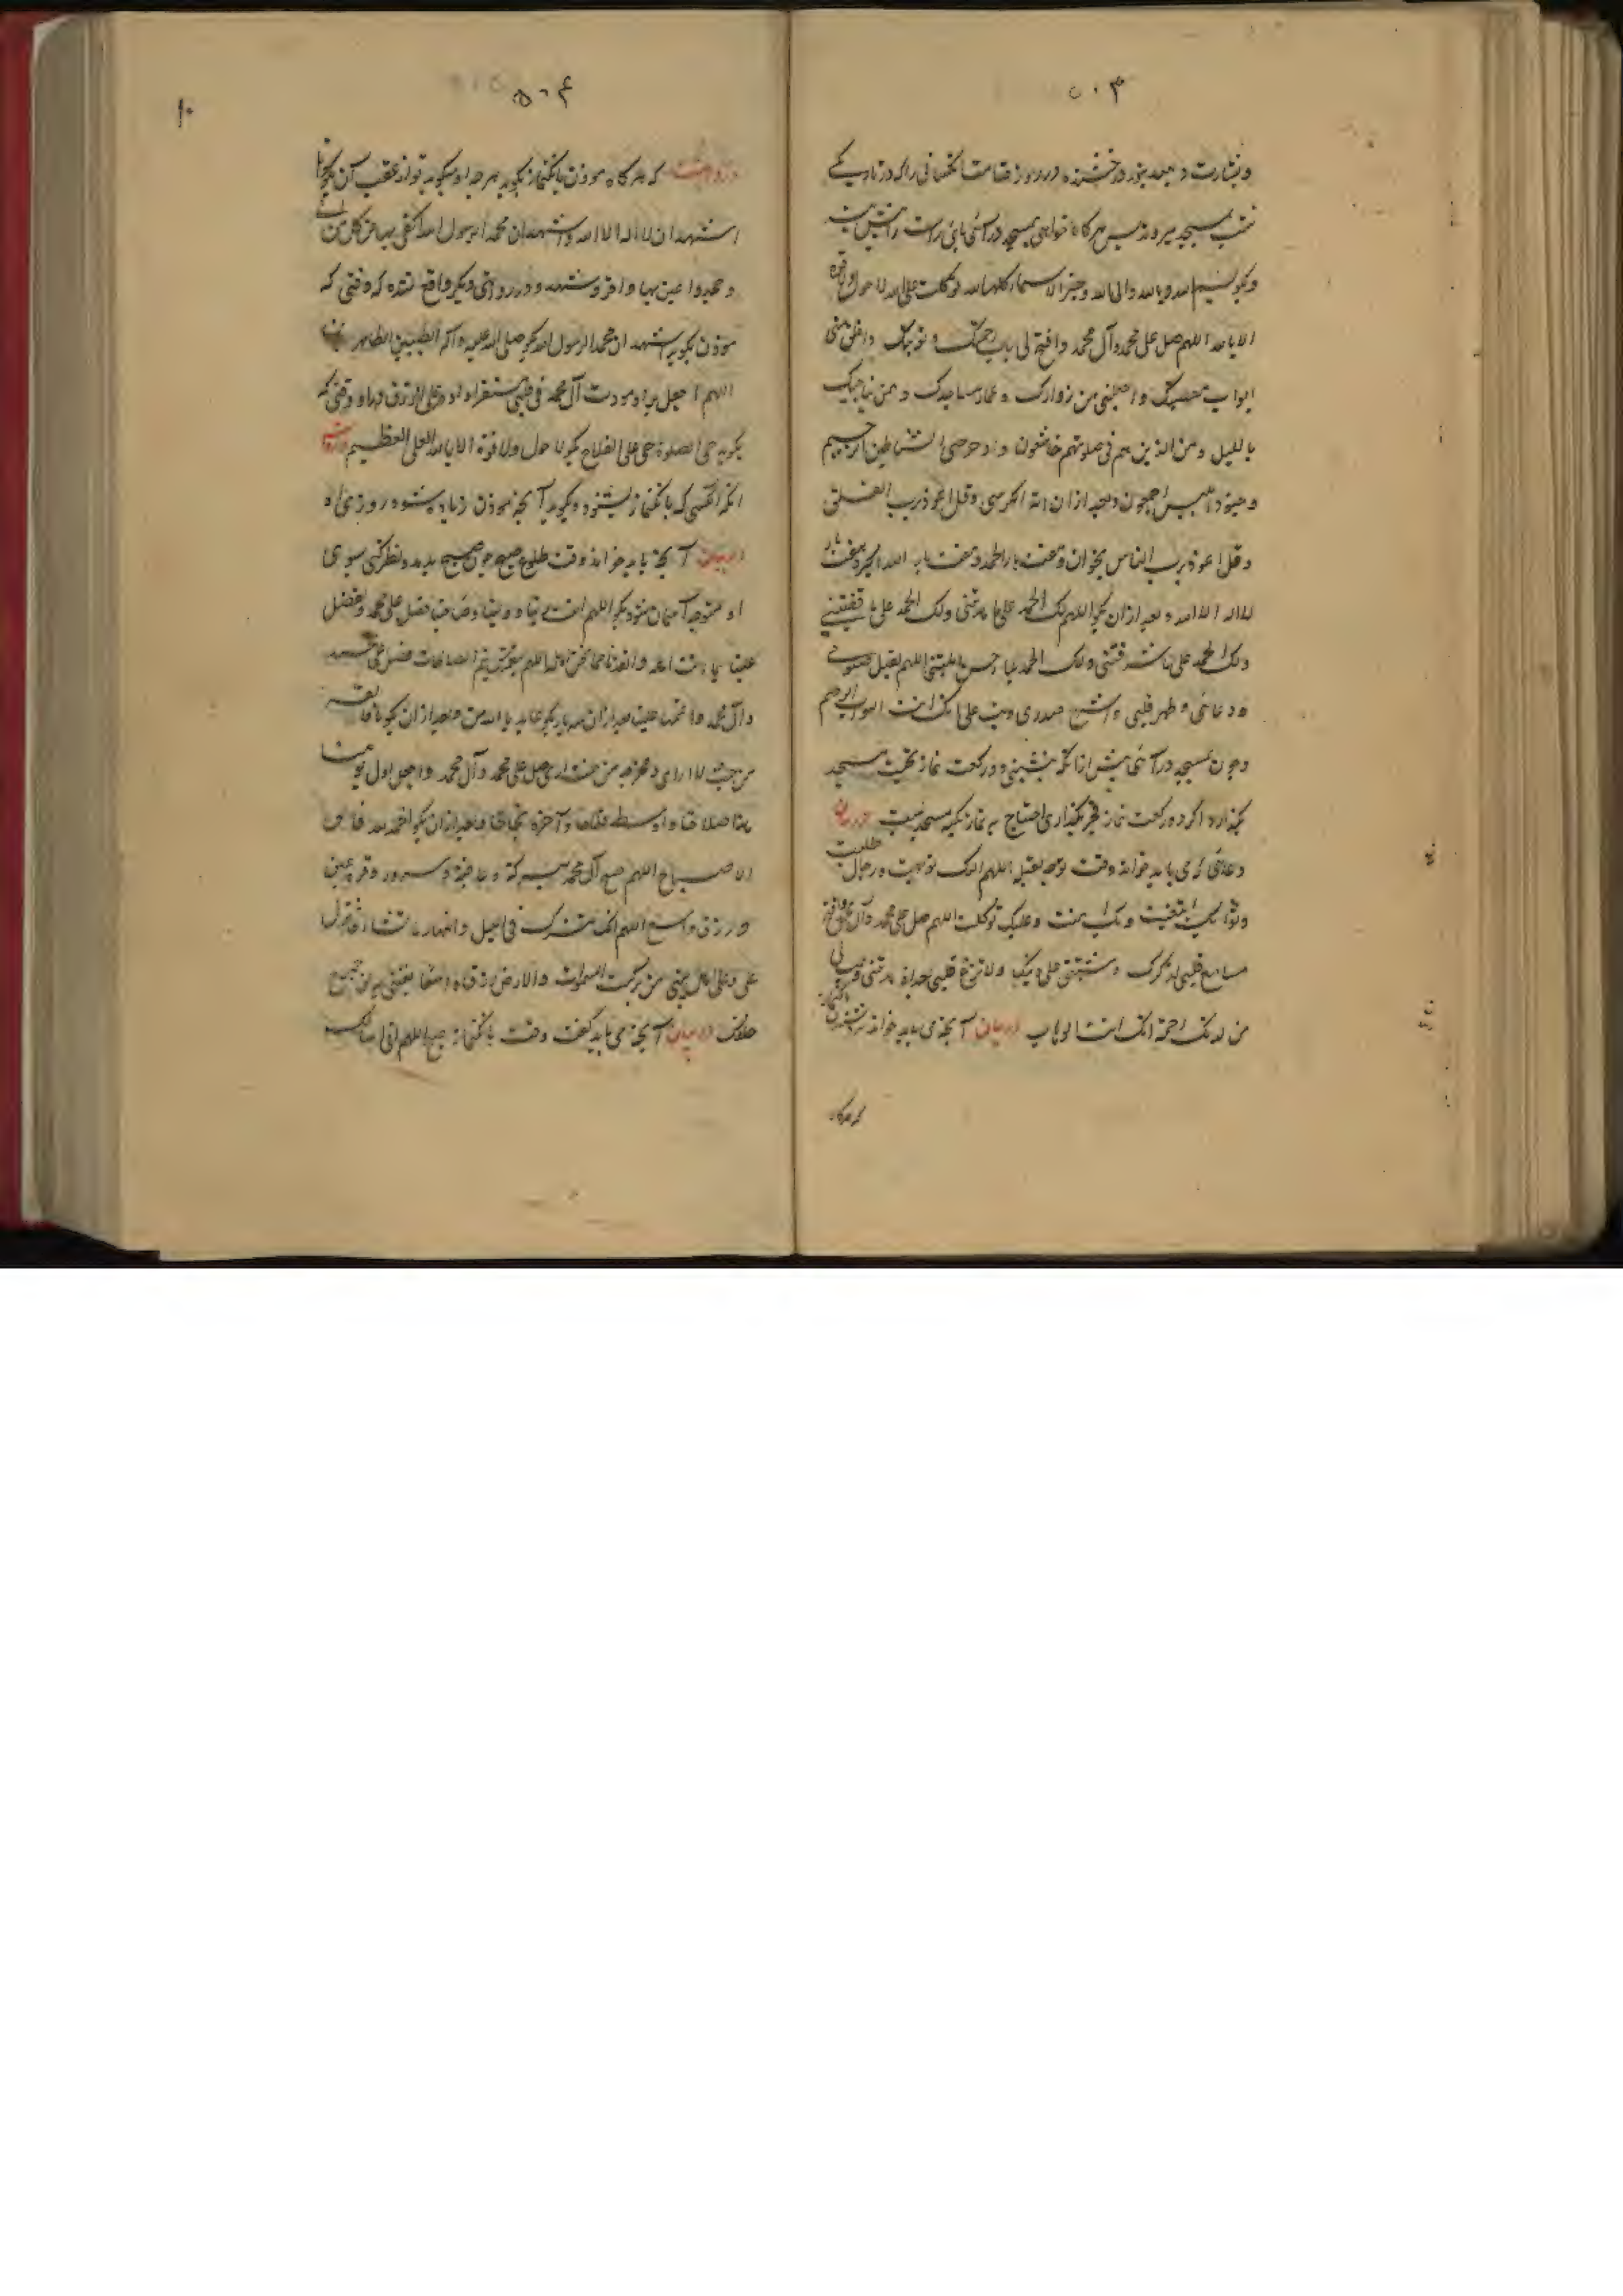 ۵۰۳
و بشارت دهید بنور درخشنده در روز قیامت کسانی را که در تاریکی
شب بمسجد میروند پس هرگاه خواهی بمسجد درآئی پای راست را پیش
و بگو بسم الله و بالله و الی الله و خیر الاسماء کلها لله توکلت علی الله لا حول و لا قوة
الا بالله اللهم صل علی محمد و آل محمد وافتح لی باب رحمتک و توبتک واغلق عنی
ابواب معصیتک واجعلنی من زوارک و عمار مساجدک و ممن یناجیک
باللیل ومن الذین هم فی صلوتهم خاشعون وادحر عنی الشیطان الرجیم
و جنود ابلیس اجمعون و بعد ازان آیة الکرسی و قل اعوذ برب الفلق
و قل اعوذ برب الناس بخوان و هفت بار الحمد لله و هفت بار الله اکبر و هفت بار
لا اله الا الله و بعد ازان بگو اللهم لک الحمد علی ما هدیتنی ولک الحمد علی ما
ولک الحمد علی ما شرفتنی ولک الحمد اللهم تقبل صلوتی
و دعائی و طهر قلبی واشرح صدری وتب علی انک انت التواب الرحیم
و چون بمسجد درآئی پیش ازانکه بنشینی دو رکعت نماز تحیت مسجد
بگذار و اگر دو رکعت نماز فجر بگذاری احتیاج به نماز تحیت مسجد نیست در بیان
دعائی که می باید خواند وقت توجه بقبله اللهم الیک توجهت و رضاک طلبت
و ثوابک ابتغیت وبک امنت وعلیک توکلت اللهم صل علی محمد و آل محمد وافتح
مسامع قلبی لذکرک وثبتنی علی دینک ولا تزغ قلبی بعد اذ هدیتنی وهب لی
من لدنک رحمة انک انت الوهاب در بیان آنچه می باید خواند نزد شنیدن بانگ نماز
که هرگاه
۵۰۴
در روایتست که هرگاه موذن بانگ نماز بگوید هرچه او میگوید تو از عقب آن بگو تا
اشهد ان لا اله الا الله واشهد ان محمدا رسول الله اکتفی بها عن کل من ابی
و جحد واعین بها من اقر و شهد و در روایتی دیگر واقع شده که وقتی که
موذن بگوید اشهد ان محمدا رسول الله بگو صلی الله علیه وآله الطیبین الطاهرین
اللهم اجعل مودت آل محمد فی قلبی مستقرا و وقتی که
بگوید حی الصلوة حی علی الفلاح بگو لا حول ولا قوة الا بالله العلی العظیم در روایتست
آنکه انکسی که بانگ نماز بشنود و بگوید آنچه موذن زیاده شود روزی او
در بیان آنچه باید خواند وقت طلوع صبح چون صبح بدمد و نظر کنی بسوی
او متوجه آسمان شو و بگو اللهم انت ربنا وصاحبنا فصل علی محمد وافضل
علینا اللهم بنعمتک تتم الصالحات فصل علی محمد
وآل محمد واتمها علینا بعد ازان سه بار بگو عایذ بالله من النار بعد ازان بگو یا فالقه
من حیث لا اری ومخرجه من حیث اری صل علی محمد وآل محمد واجعل اول یومنا
هذا صلاحا واوسطه فلاحا وآخره نجاحا و بعد ازان بگو الحمد لله فالق
الاصباح اللهم صبح آل محمد ببرکة وعافیة وسرور وقرة عین
ورزق واسع اللهم انک تنزل فی اللیل والنهار ما تشاء فانزل
علی وعلی اهل بیتی من برکت السموات والارض رزقا واسعا تغنینی به عن جمیع
خلقک در بیان آنچه می باید گفت وقت بانگ نماز صبح اللهم انی اسئلک